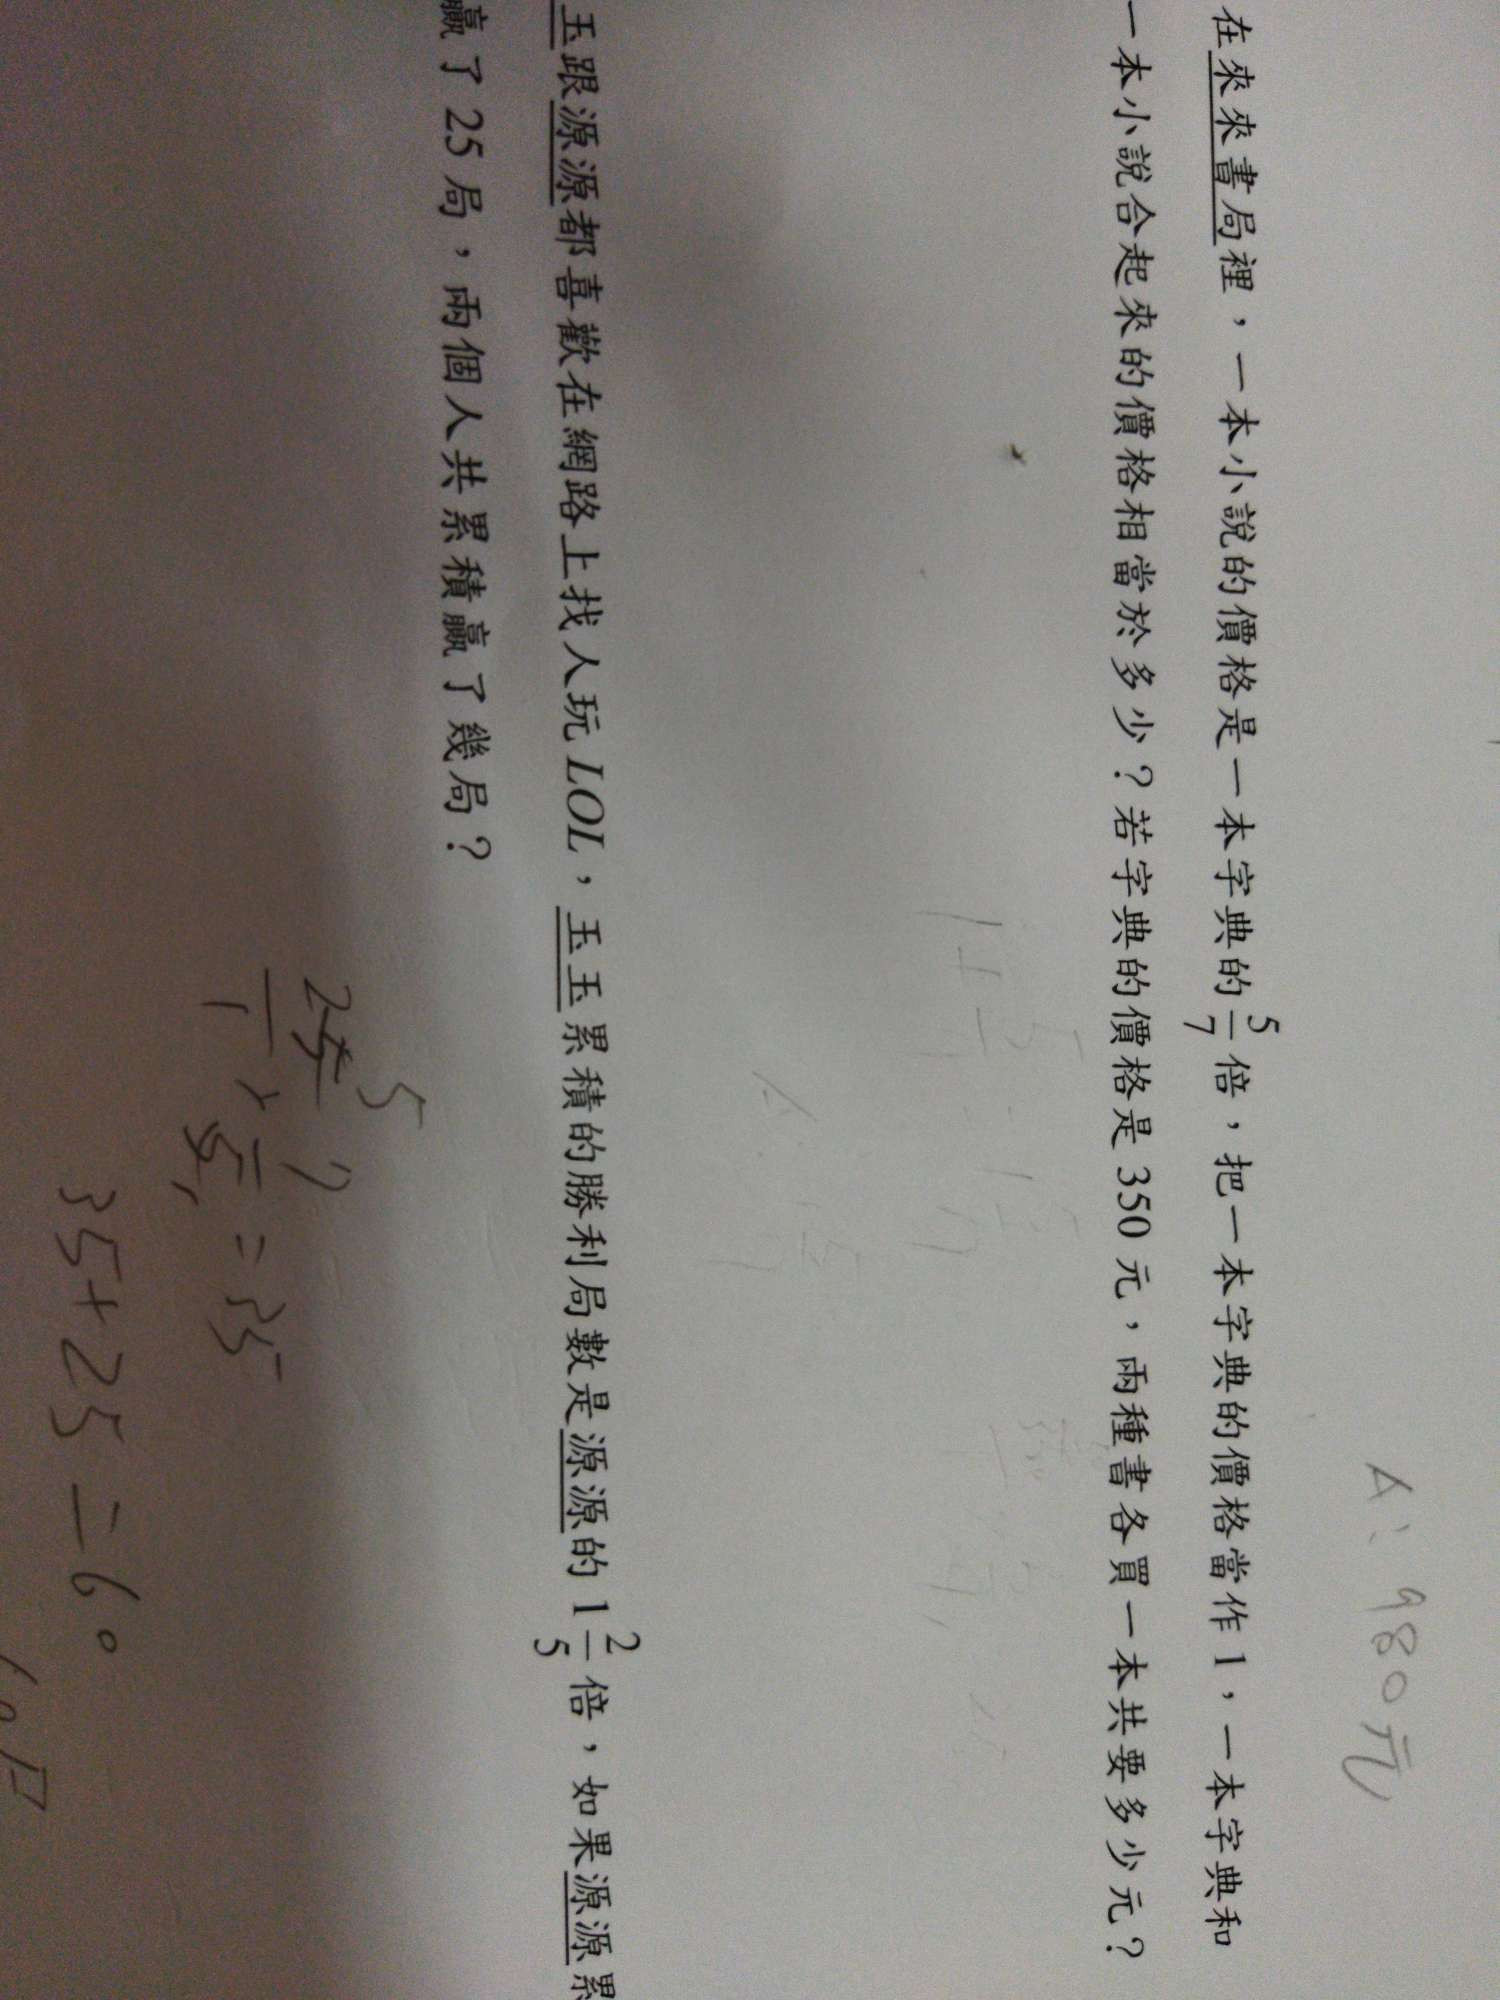 A：980元
在來來書局裡，一本小說的價格是一本字典的5/7倍，把一本字典的價格當作1，一本字典和
一本小說合起來的價格相當於多少？若字典的價格是350元，兩種書各買一本共要多少元？
玉跟源源都喜歡在網路上找人玩LOL，玉玉累積的勝利局數是源源的1 2/5倍，如果源源累
贏了25局，兩個人共累積贏了幾局？
25/1 × 7/5 = 35
35+25=60